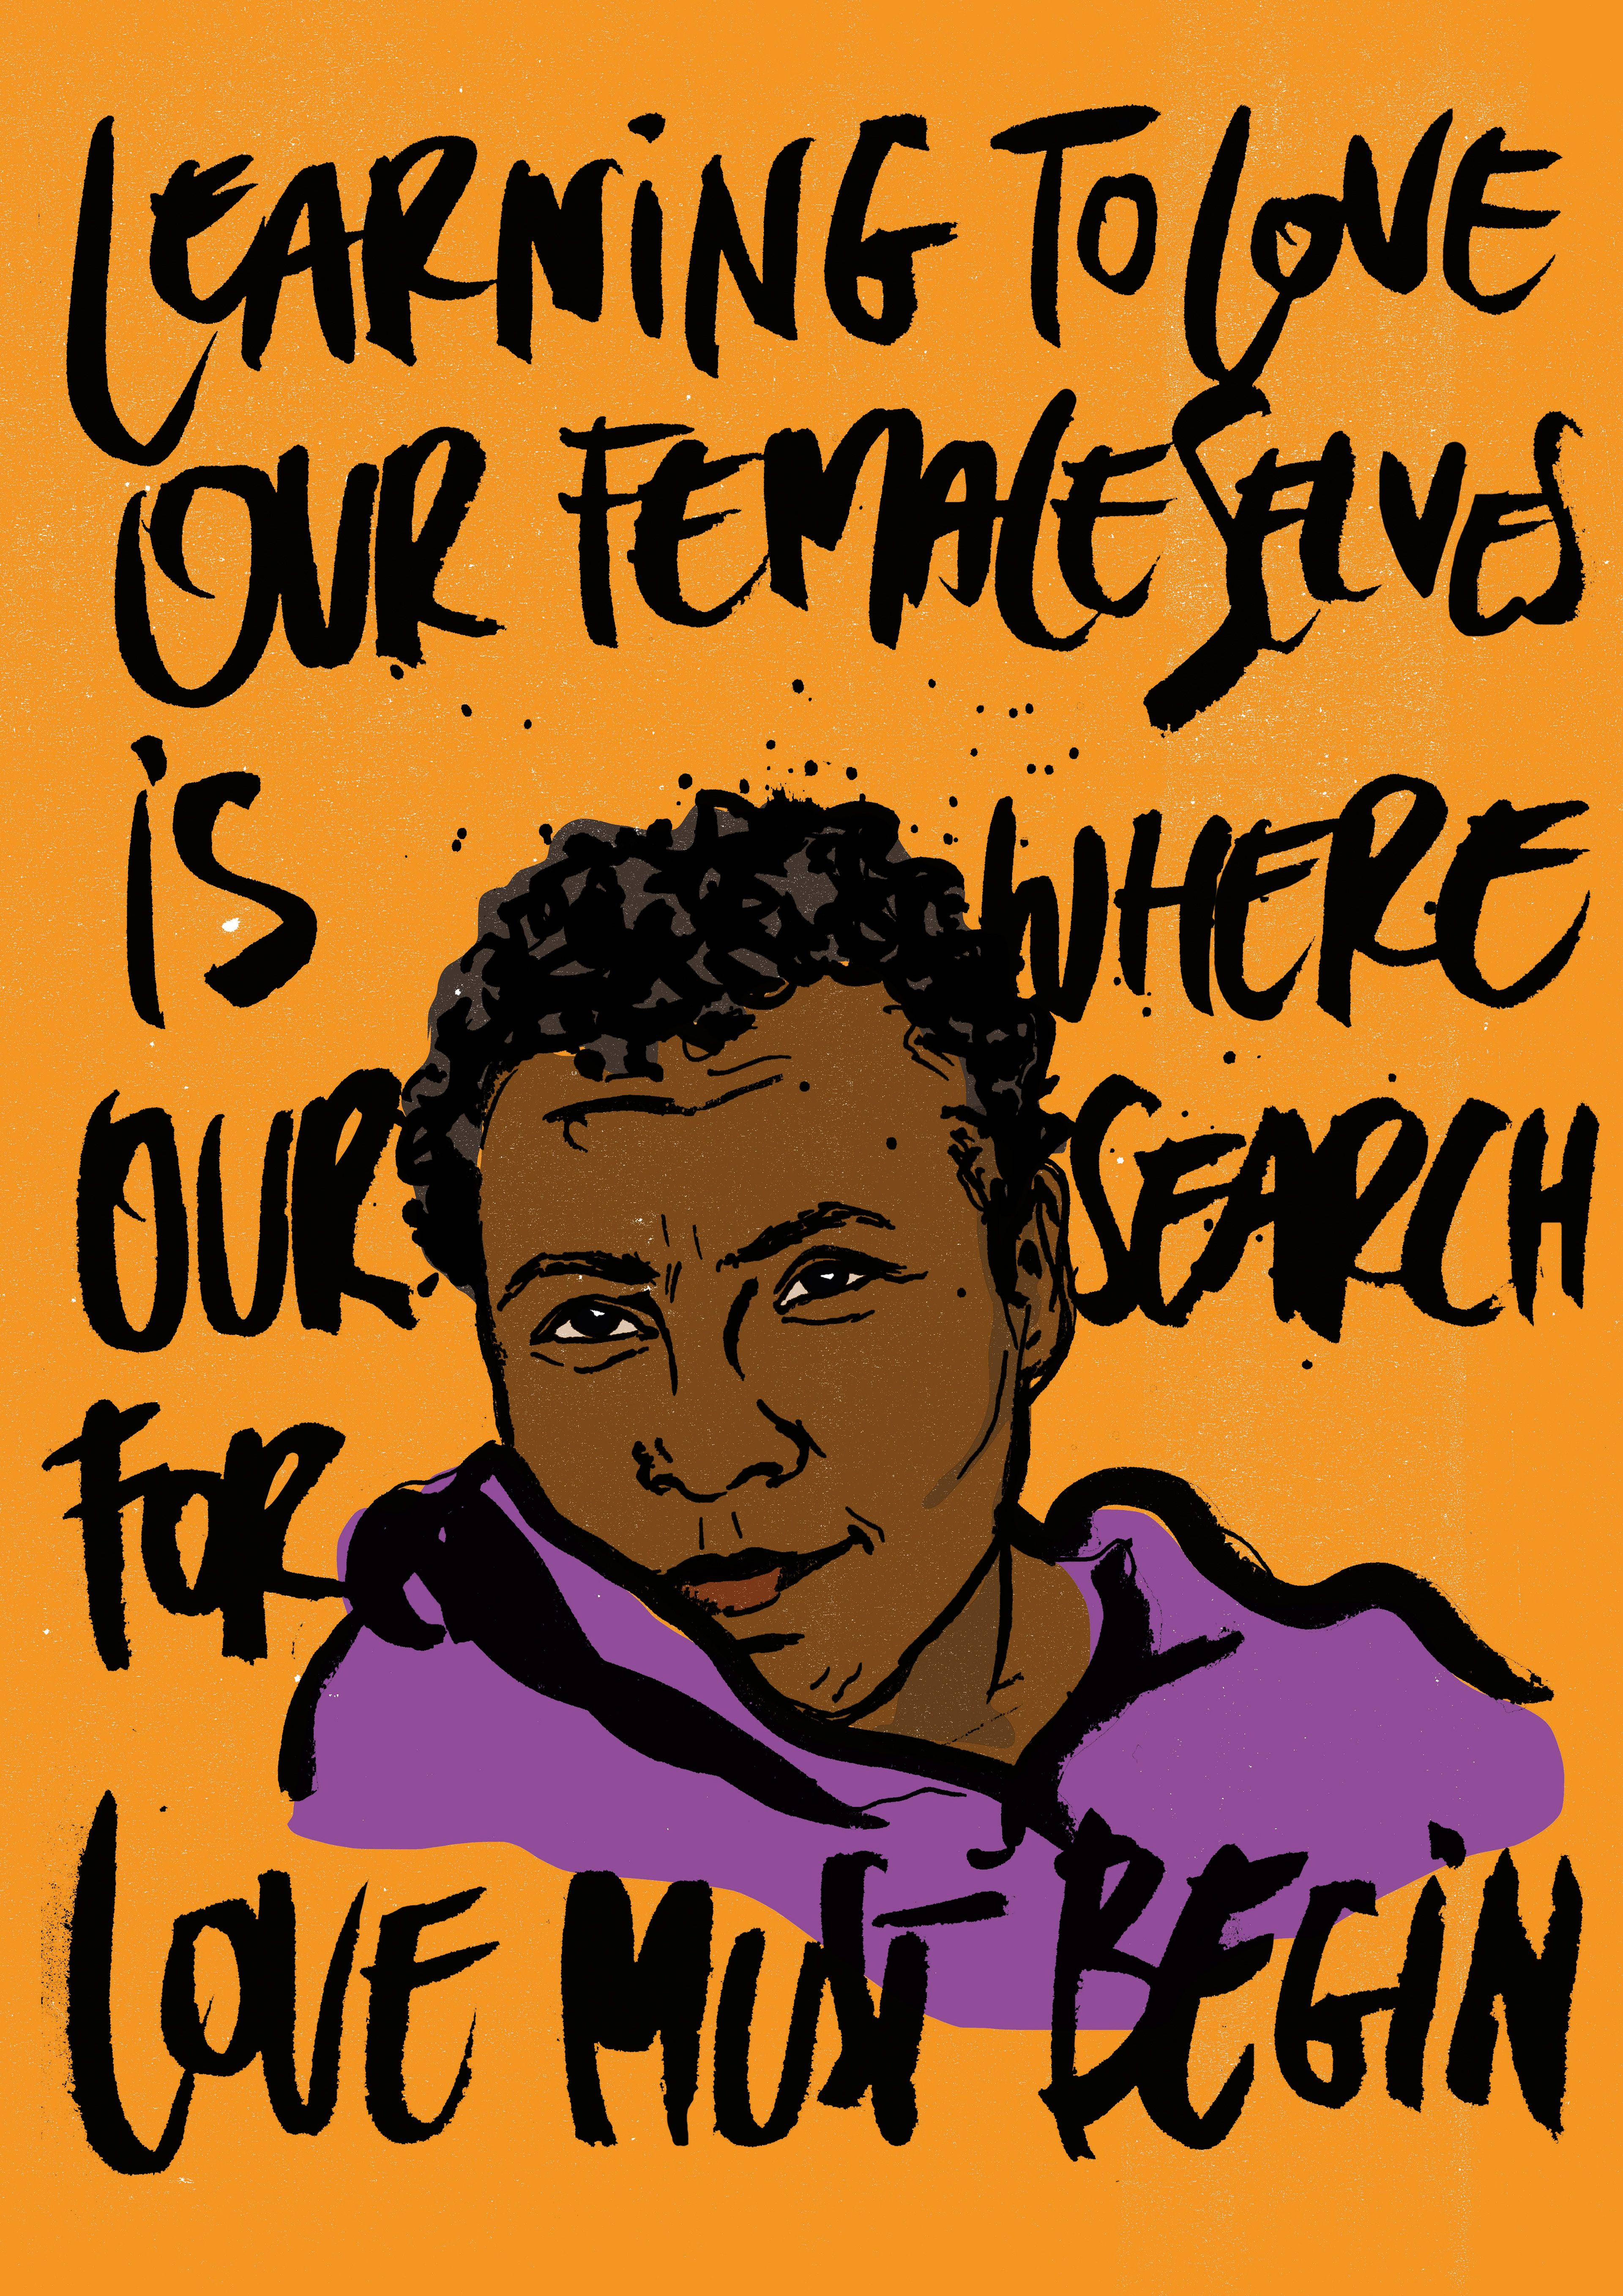 LEARNING TO LOVE
OUR FEMALE SELVES
IS WHERE
OUR SEARCH
FOR
LOVE MUST BEGIN